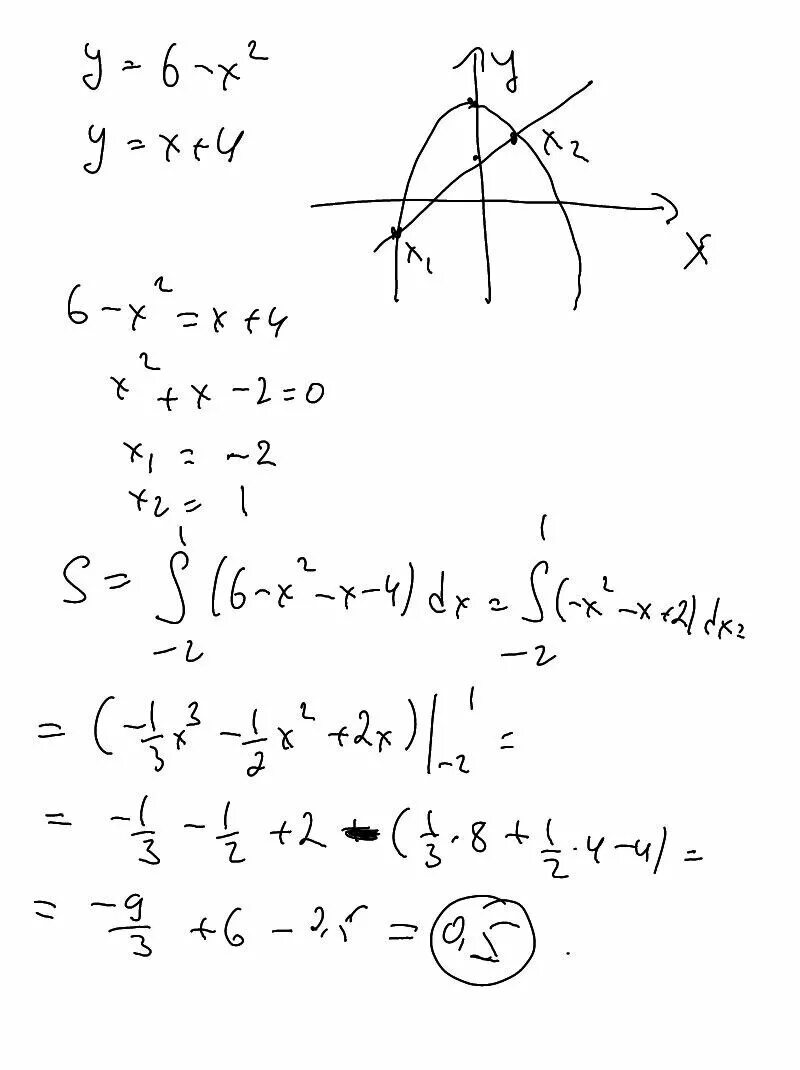 y = 6 - x²
y = x + 4
y
x₂
x₁
x
6 - x² = x + 4
x² + x - 2 = 0
x₁ = -2
x₂ = 1
S = ∫₋₂¹ (6 - x² - x - 4) dx = ∫₋₂¹ (-x² - x + 2) dx =
= (-1/3 x³ - 1/2 x² + 2x) |₋₂¹ =
= -1/3 - 1/2 + 2 - (1/3 · 8 + 1/2 · 4 - 4) =
= -9/3 + 6 - 2,5 = 0,5